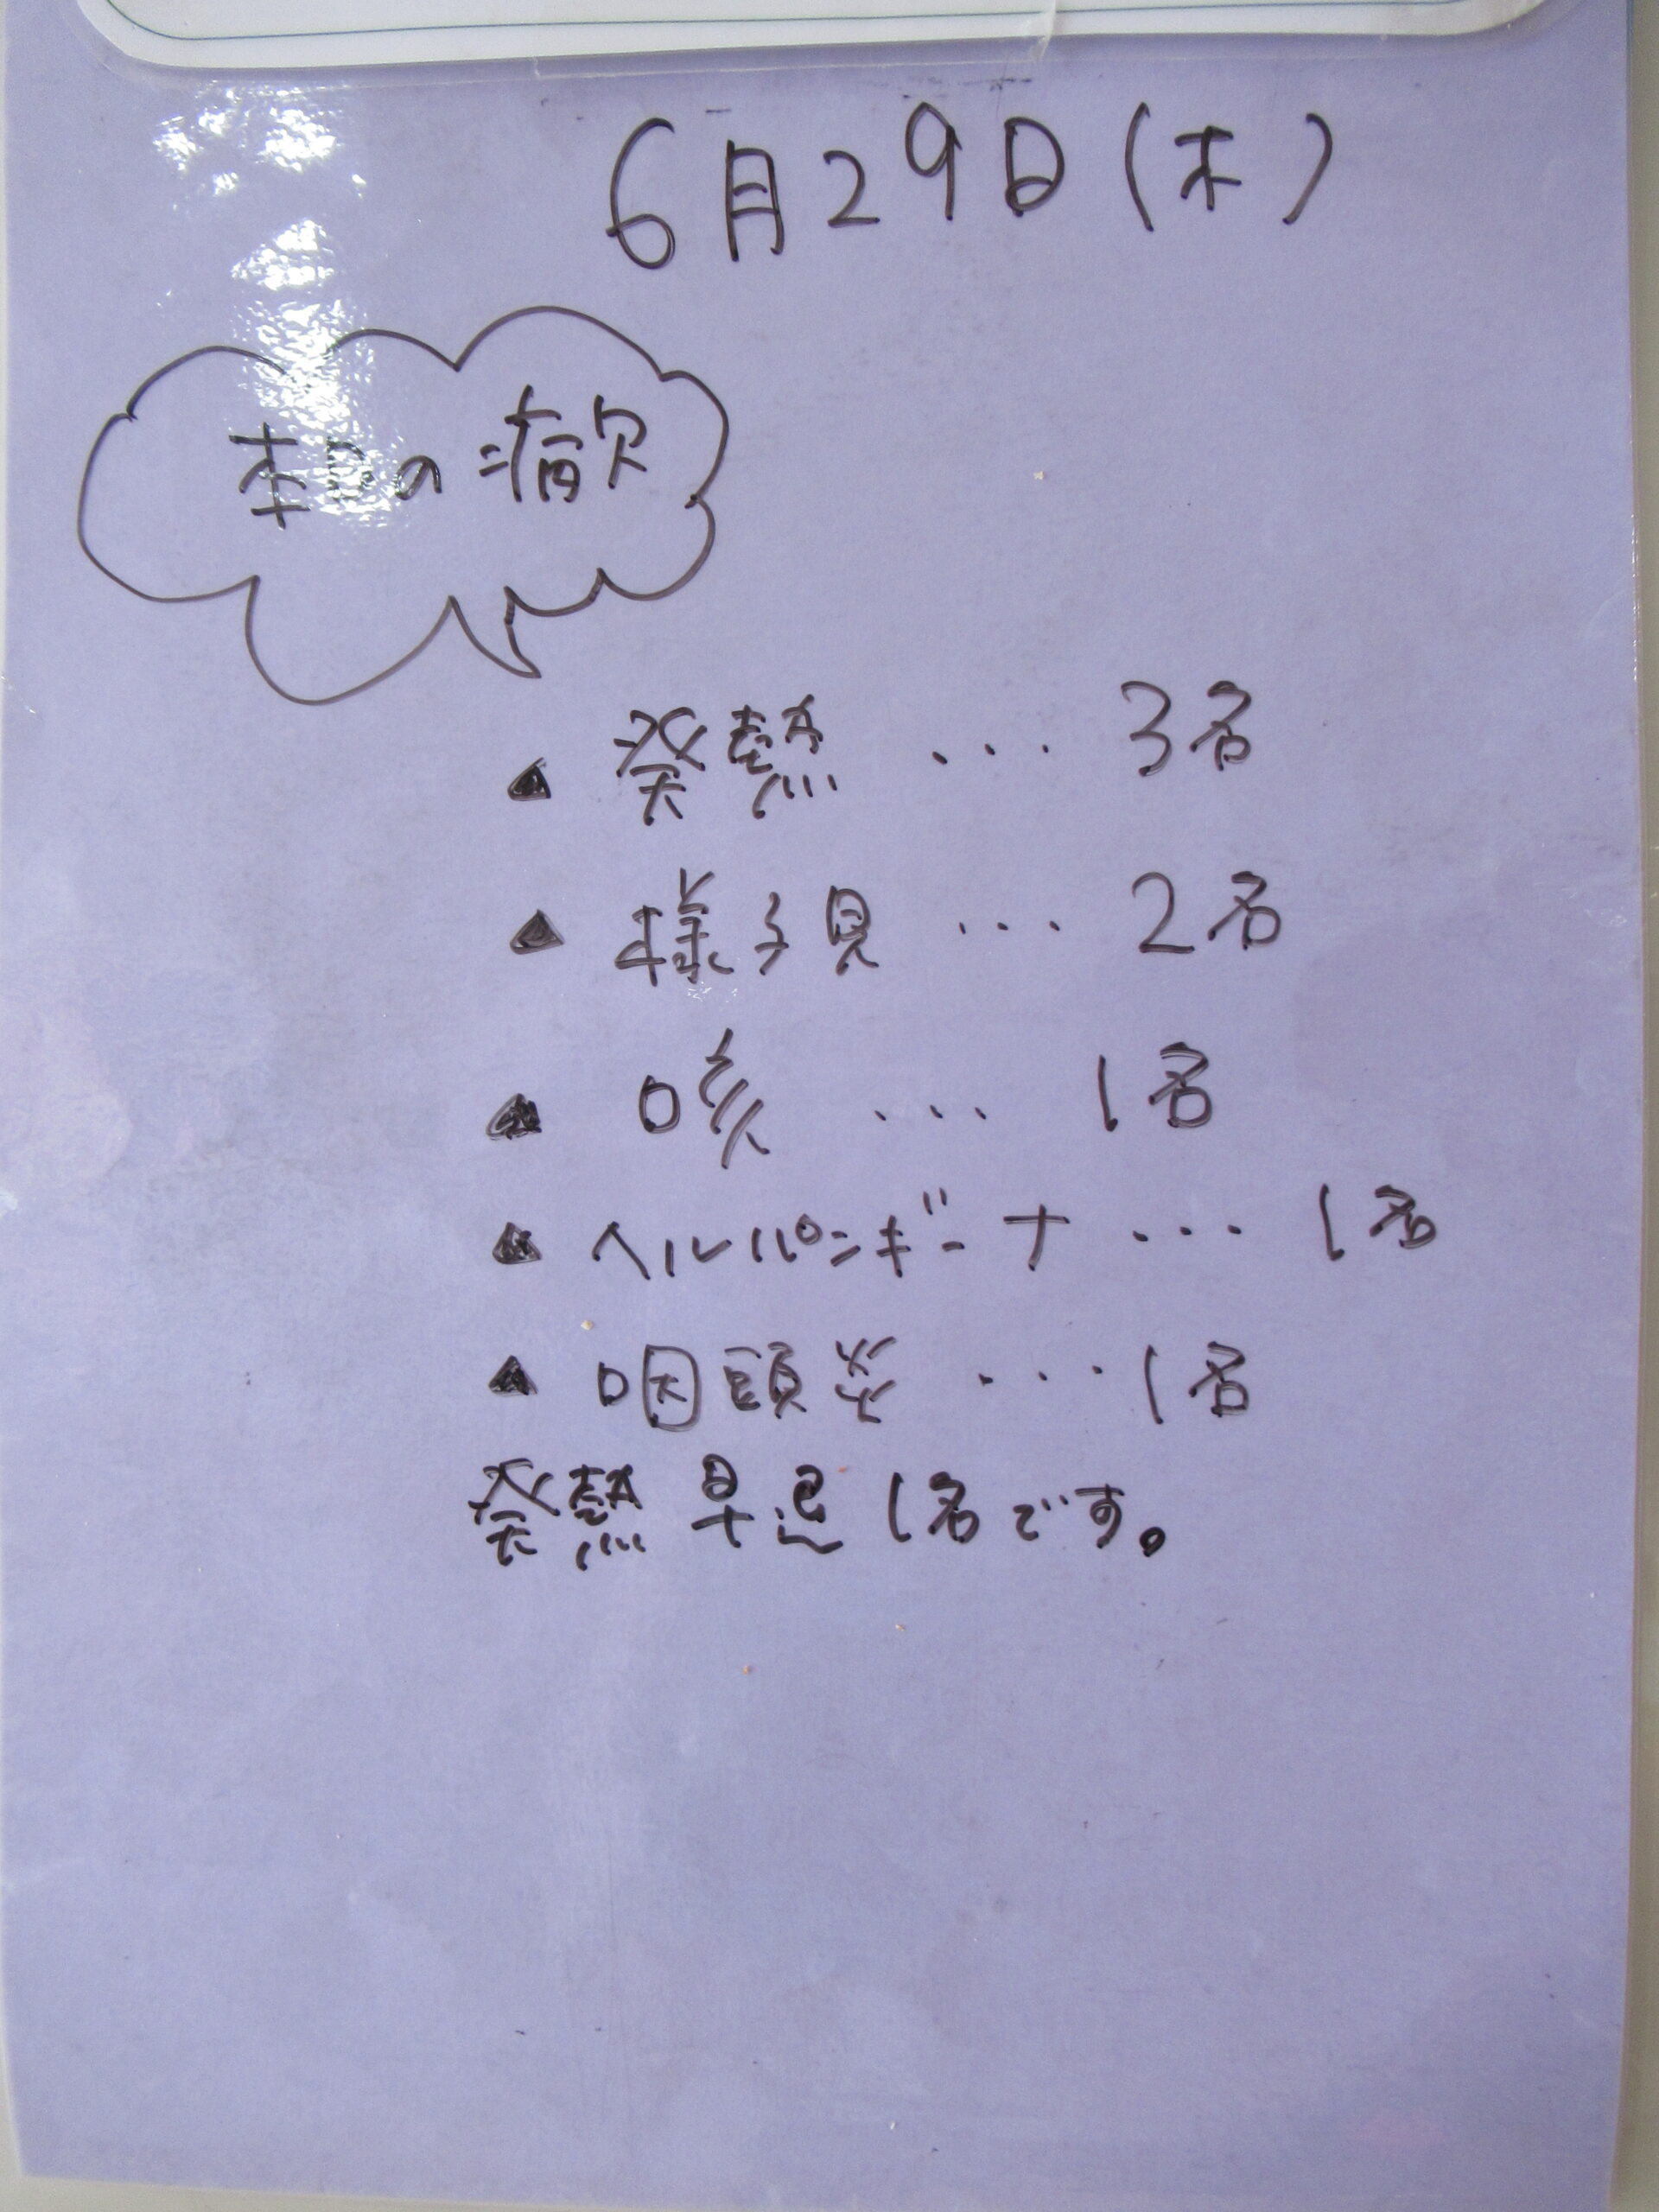 6月29日(木)
本日の病欠
▲ 発熱 ... 3名
▲ 様子見 ... 2名
▲ 咳 ... 1名
▲ ヘルパンギーナ ... 1名
▲ 咽頭炎 ... 1名
発熱早退1名です。